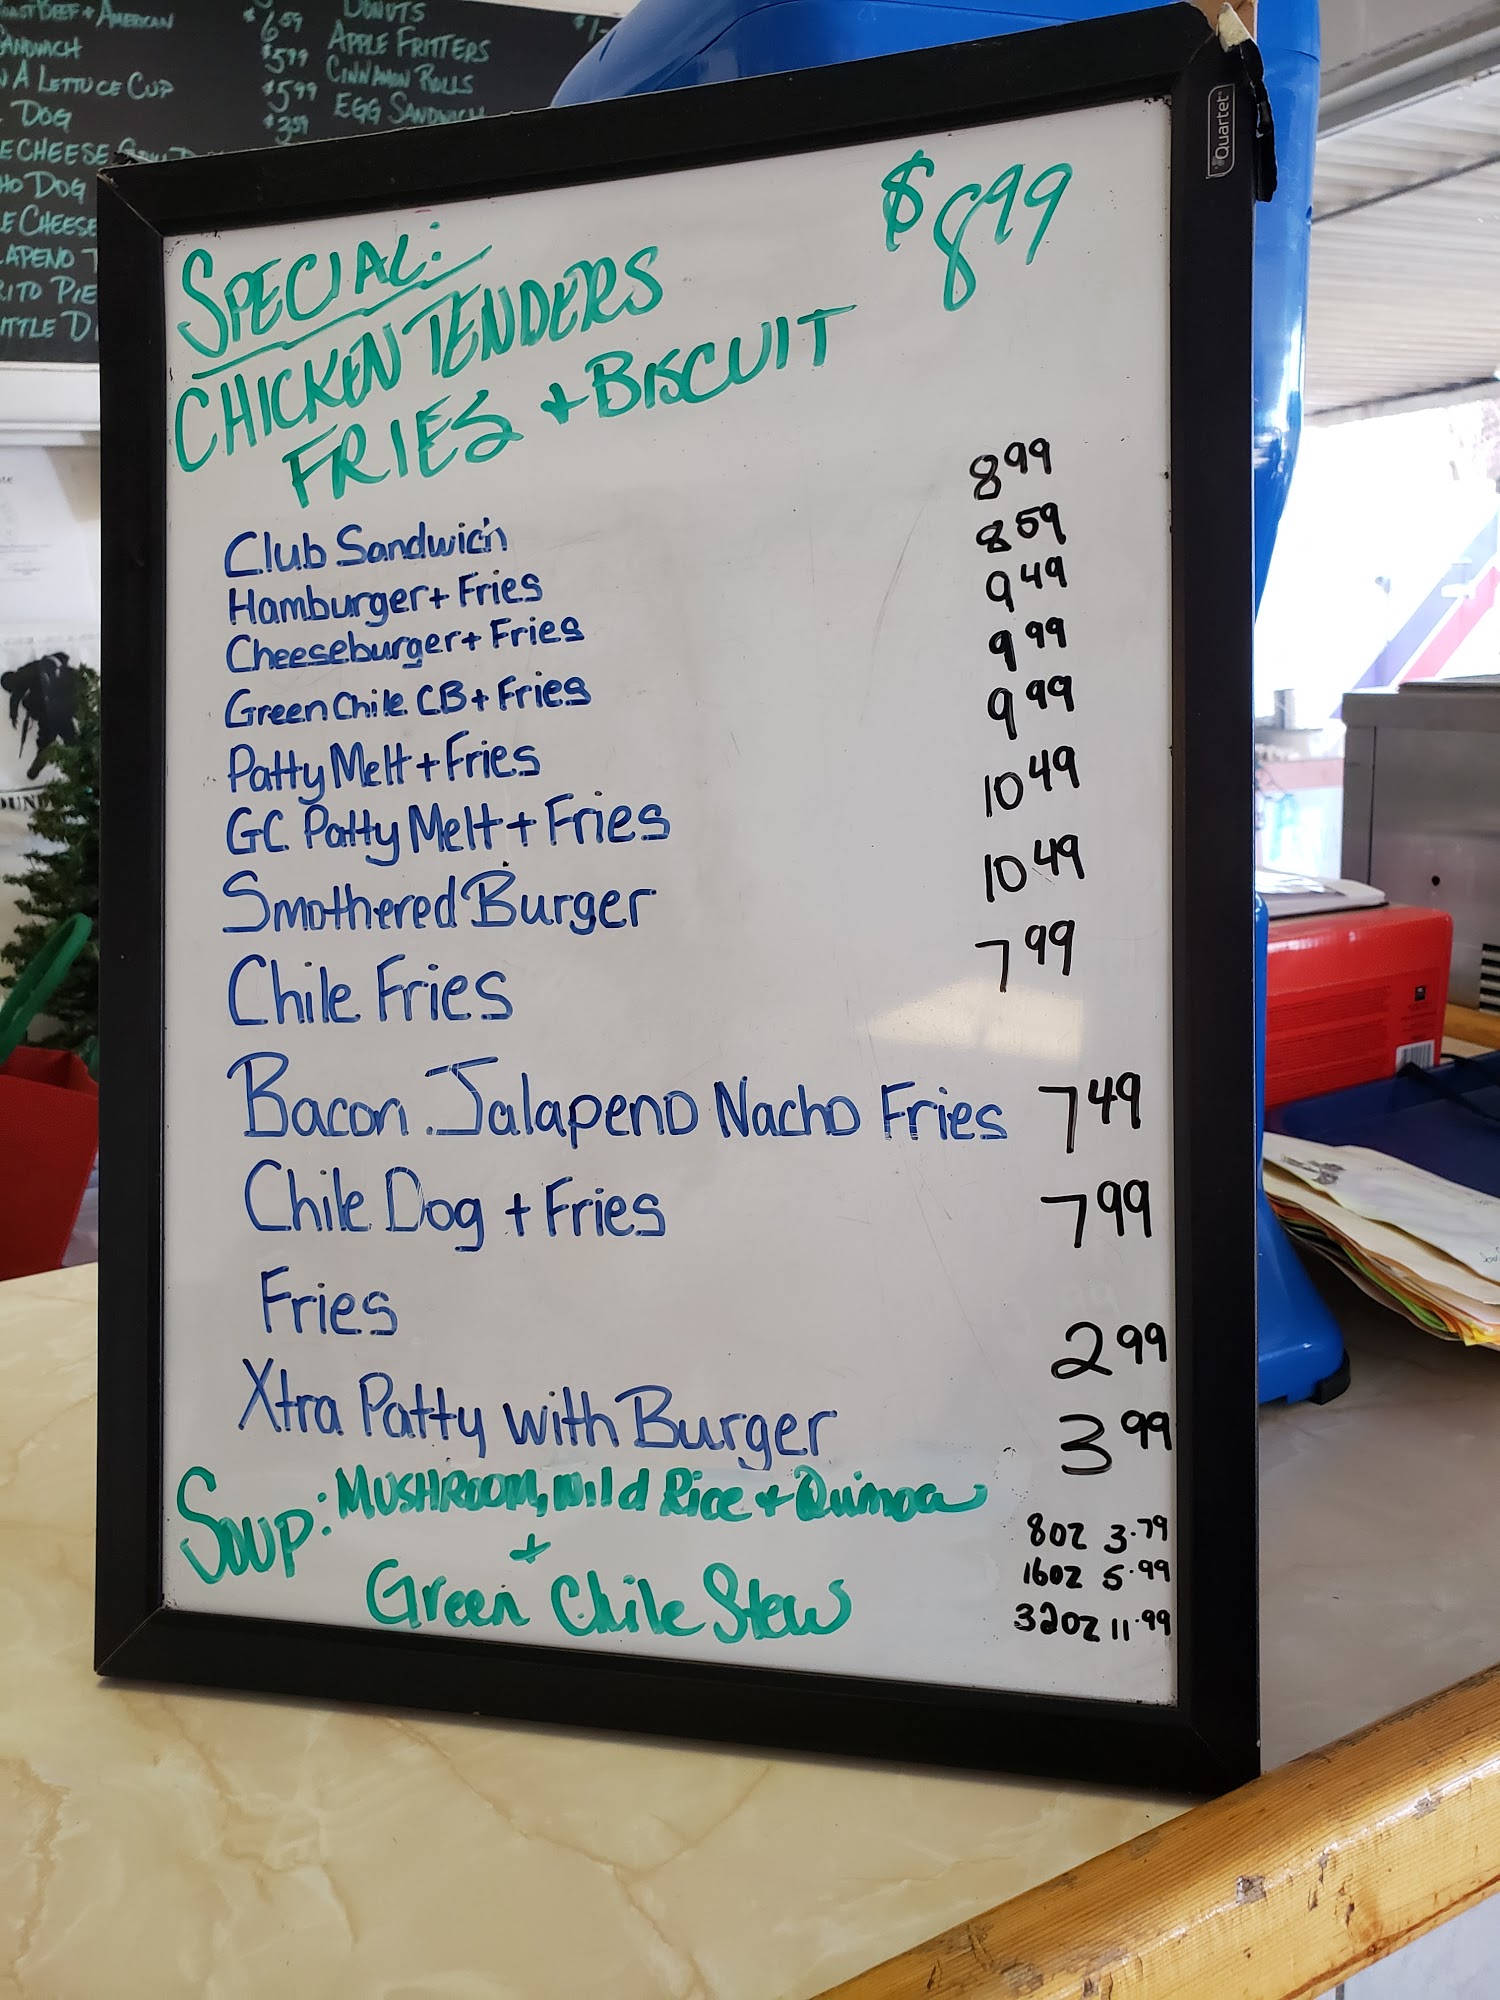 & AMERICAN $6.59
SANDWICH $5.99
A LETTUCE CUP $5.99
DOG $3.59
CHEESE
DOG
CHEESE
DONUTS
APPLE FRITTERS
CINNAMON ROLLS
EGG SANDWICH
Quartet
SPECIAL: $8.99
CHICKEN TENDERS
FRIES + BISCUIT
Club Sandwich 8.99
Hamburger + Fries 8.59
Cheeseburger + Fries 9.49
Green Chile CB + Fries 9.99
Patty Melt + Fries 9.99
GC Patty Melt + Fries 10.49
Smothered Burger 10.49
Chile Fries 7.99
Bacon Jalapeno Nacho Fries 7.49
Chile Dog + Fries 7.99
Fries 2.99
Xtra Patty with Burger 3.99
SOUP: MUSHROOM, Wild Rice + Quinoa
+
Green Chile Stew
8oz 3.79
16oz 5.99
32oz 11.99